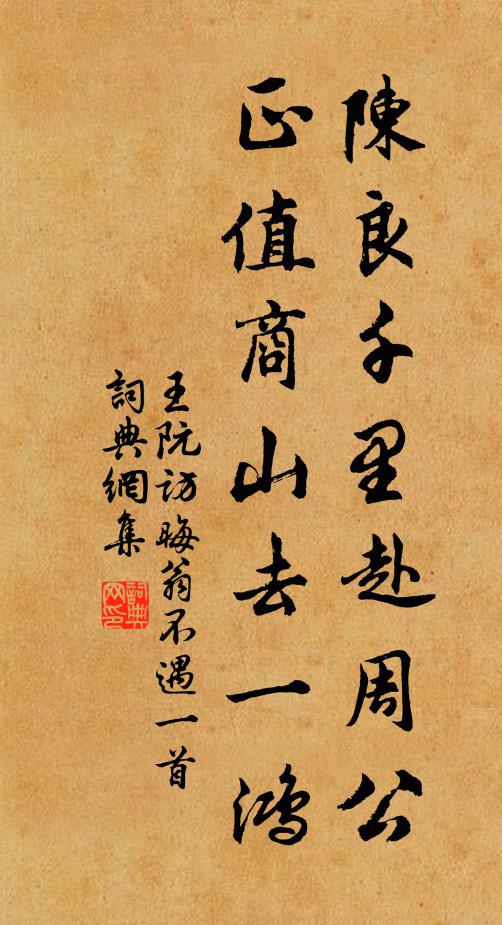 陳良千里赴周公
正值商山去一鴻
王阮訪晦翁不遇一首
詞典網集
詞典網印